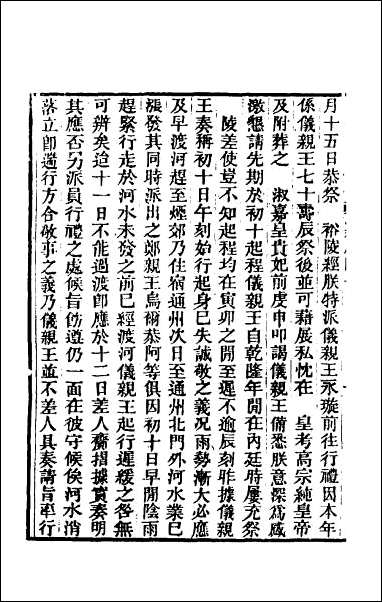 月十五日恭祭　裕陵經朕特派儀親王永璇前往行禮因本年
係儀親王七十壽辰祭後並可藉展私忱在　皇考高宗純皇帝
及附葬之　淑嘉皇貴妃前虔申叩謁儀親王備悉朕意深爲感
激懇請先期於初十起程儀親王自乾隆年閒在內廷時屢充祭
陵差使豈不知起程均在寅卯之閒至遲不逾辰刻昨據儀親
王奏稱初十日午刻始行起身已失誠敬之義况雨勢漸大必應
及早渡河趕至煙郊乃住宿通州次日至通州北門外河水業已
漲發其同時派出之鄭親王烏爾恭阿等俱因初十日早閒陰雨
趕緊行走於河水未發之前已經渡河儀親王起行遲緩之咎無
可辨矣迨十一日不能過渡卽應於十二日差人齎摺據實奏明
其應否另派員行禮之處候旨飭遵仍一面在彼守候俟河水消
落立卽遄行方合敬事之義乃儀親王並不差人具奏請旨率行